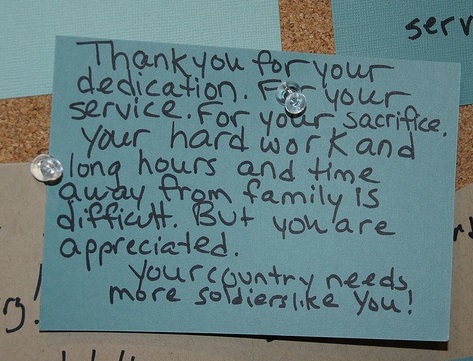 serv
Thank you for your
dedication. For your
service. For your sacrifice.
your hard work and
long hours and time
away from family is
difficult. But you are
appreciated.
your country needs
more soldiers like you!